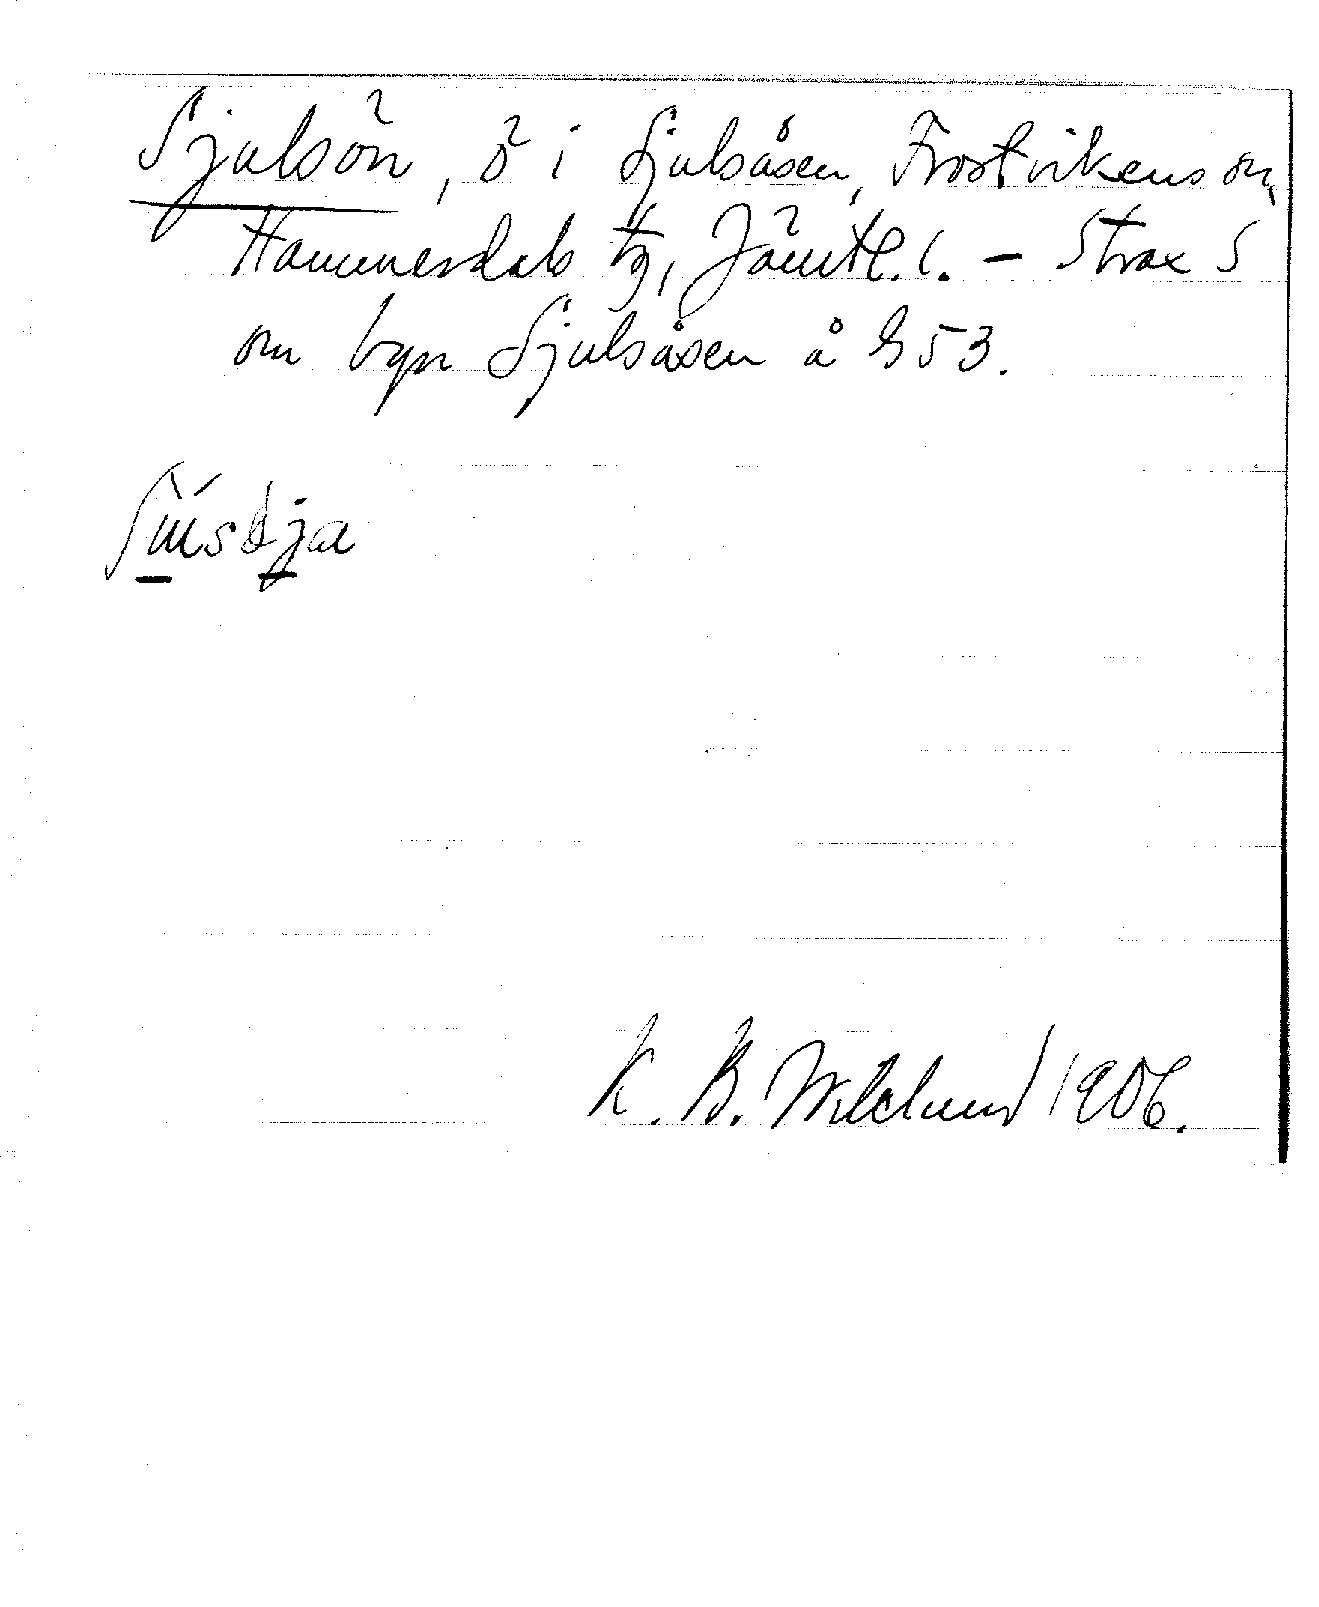 Sjulsön, ö i Sjulsåsen, Frostvikens sn,
Hammerdals tg, Jämtl. l. – Strax S
om byn Sjulsåsen å G 53.
K. B. Wiklund 1906.